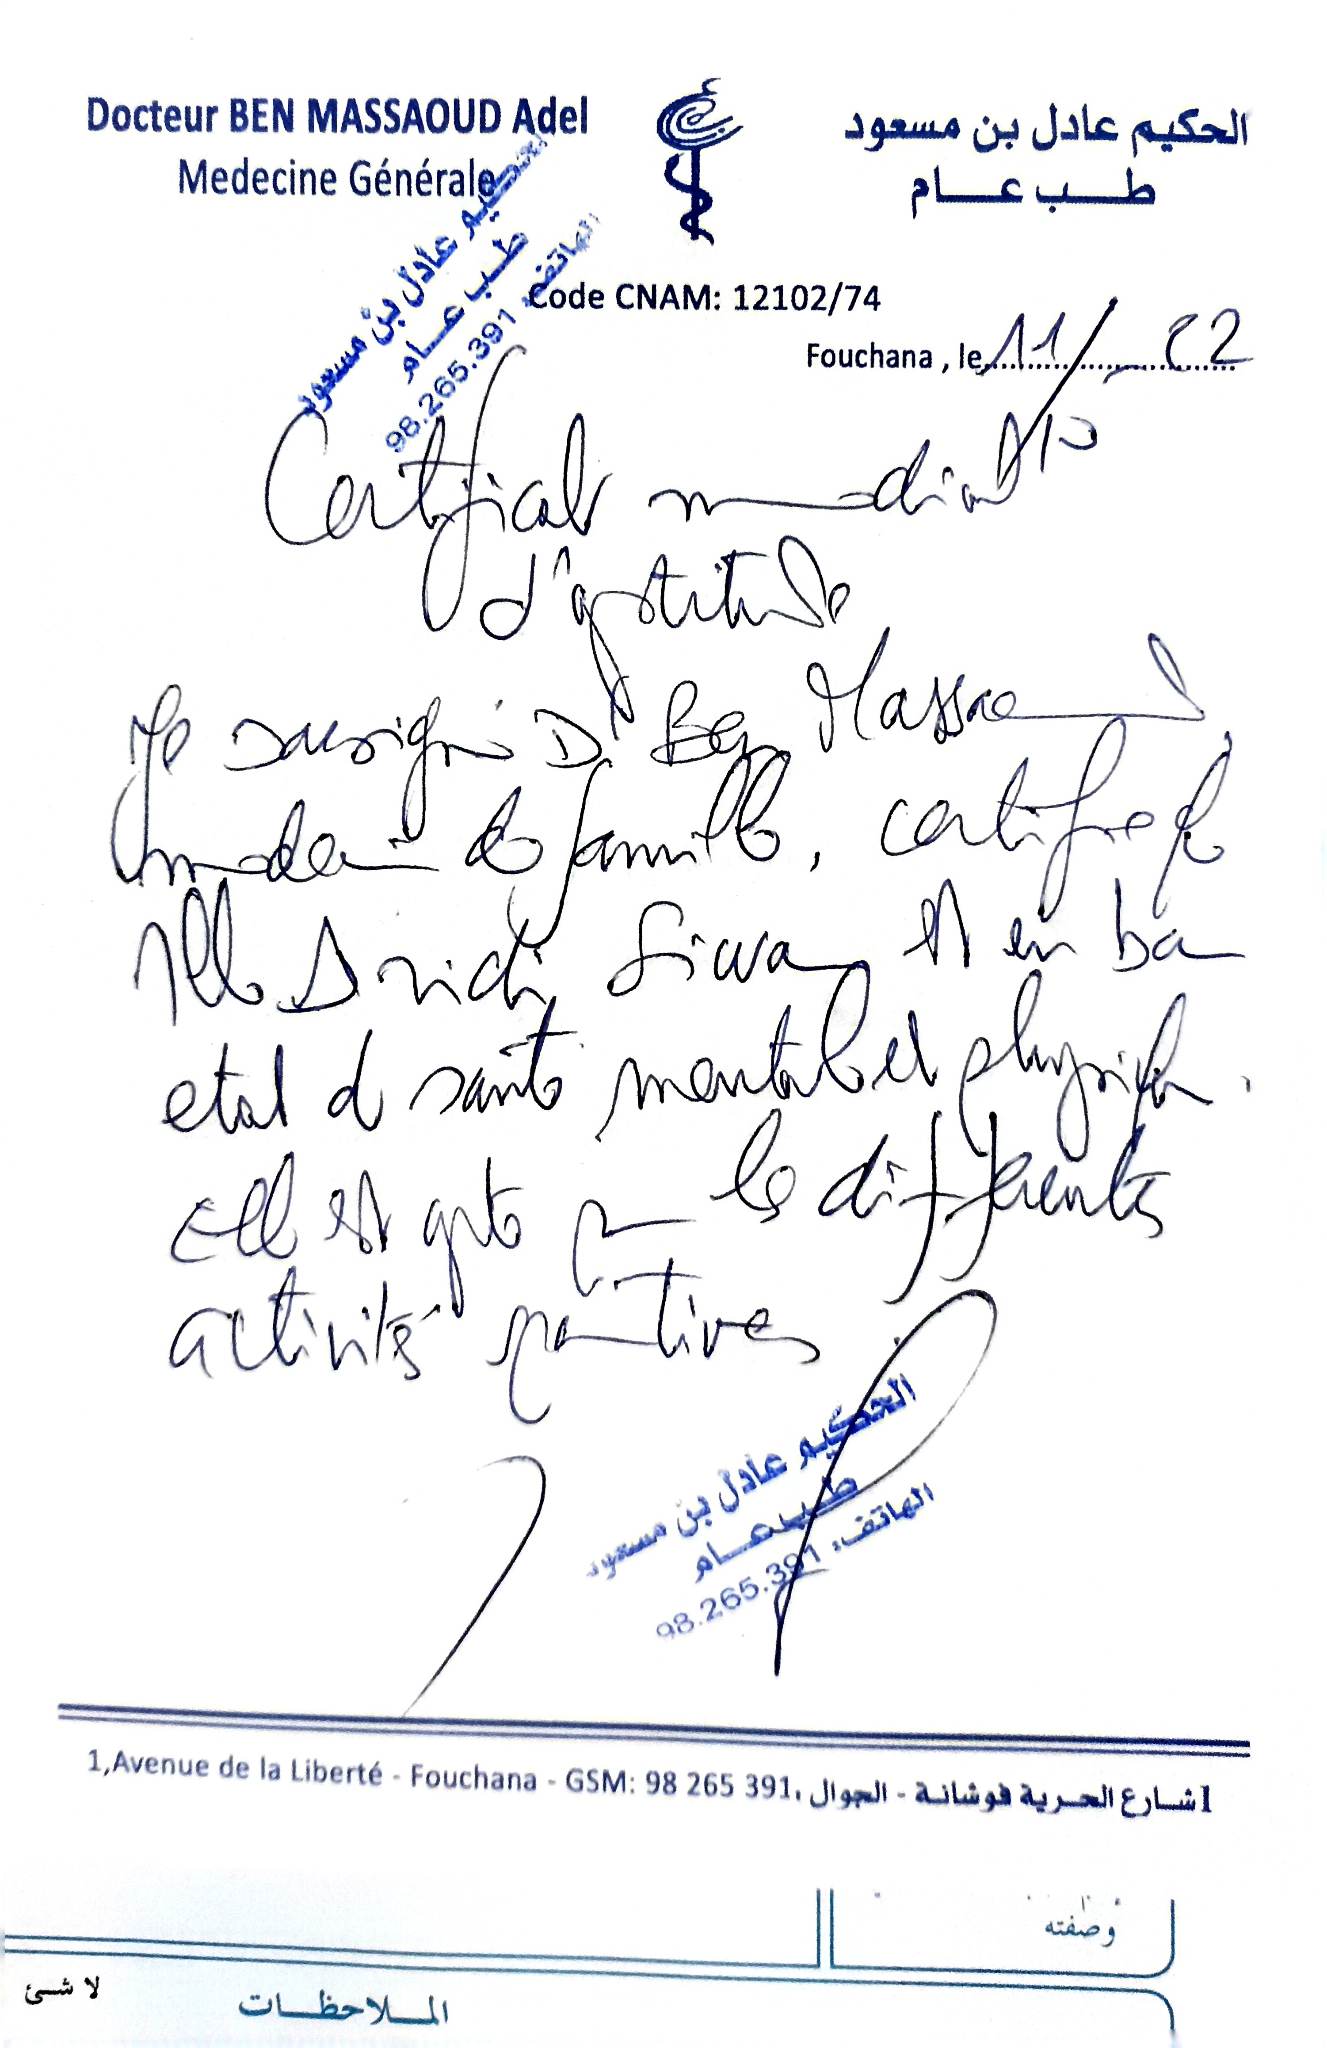 Docteur BEN MASSAOUD Adel
Medecine Générale
الحكيم عادل بن مسعود
طـــب عـــام
الحكيم عادل بن مسعود
طـب عـام
الهاتف: 98.265.391
Code CNAM: 12102/74
Fouchana , le 11/10 - 22
Certificat medical
d'aptitude
Je sousigné Dr Ben Massaoud,
medecin de famille, certifie q
Mlle Sridi est en bon
etat de santé mentale et physique.
Elle est apte pour les differentes
activités sportives
الحكيم عادل بن مسعود
طـب عـام
الهاتف: 98.265.391
1,Avenue de la Liberté - Fouchana - GSM: 98 265 391، 1 شارع الحرية فوشانة - الجوال
وصفته
لا شئ
الملاحظات